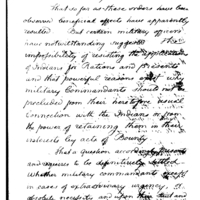 That as far as these orders have been
observed beneficial effects have apparently
resulted. But certain military officers
have notwithstanding suggested the
impossibility of resisting the
of Indians for Rations and Presents
and that powerful reasons exist why
military Commandants should not be
precluded from their heretofore usual
Connection with the Indians or from
the power of retaining them in their
interests by acts of Bounty.
That a question accordingly
and requires to be definitively settled
whether military commandants except
in cases of extraordinary urgency, or
absolute necessity and upon their